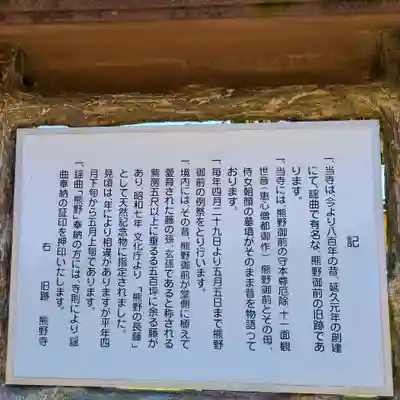 記
一、当寺は、今より八百年の昔、延久元年の創建
にて、謡曲で有名な、熊野御前の旧跡であ
ります。
一、当寺には、熊野御前の守本尊厄除、十一面観
世音(恵心僧都御作)熊野御前とその母、
侍女朝顔の墓墳がそのまま昔を物語って
おります。
一、毎年四月二十九日より五月五日まで熊野
御前の例祭をとり行います。
一、境内には、その昔、熊野御前が堂側に植えて
愛育された藤の孫、玄孫であると称される
紫房五尺以上に垂るる五百坪に余る藤が
あり、昭和七年、文化庁より、「熊野の長藤」
として天然記念物に指定されました。
見頃は、年により相違がありますが平年四
月下旬から五月上旬であります。
一、謡曲「熊野」奉納の方には、寺則により謡
曲奉納の証印を押印いたします。
右 旧跡 熊野寺